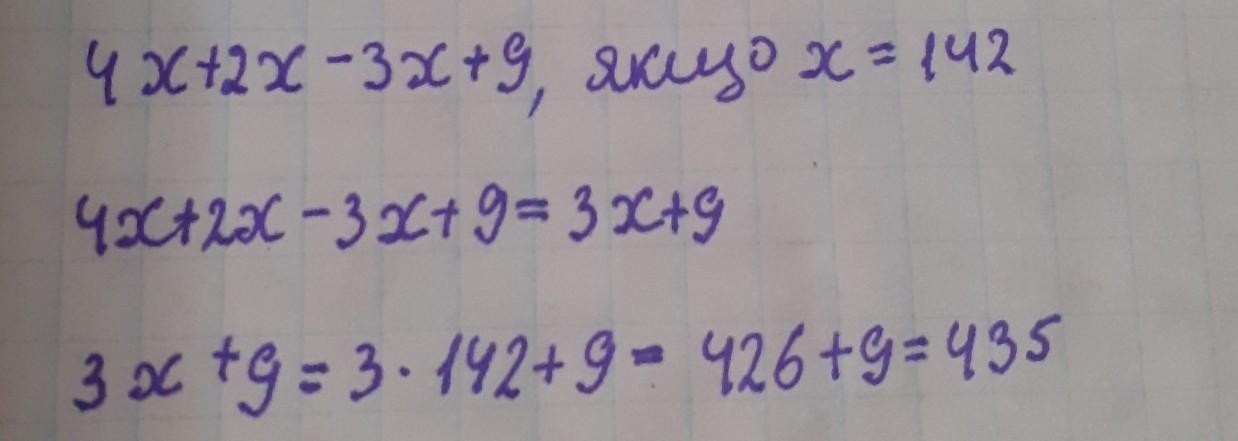 4x+2x-3x+9, якщо x=142
4x+2x-3x+9=3x+9
3x+9=3·142+9=426+9=435